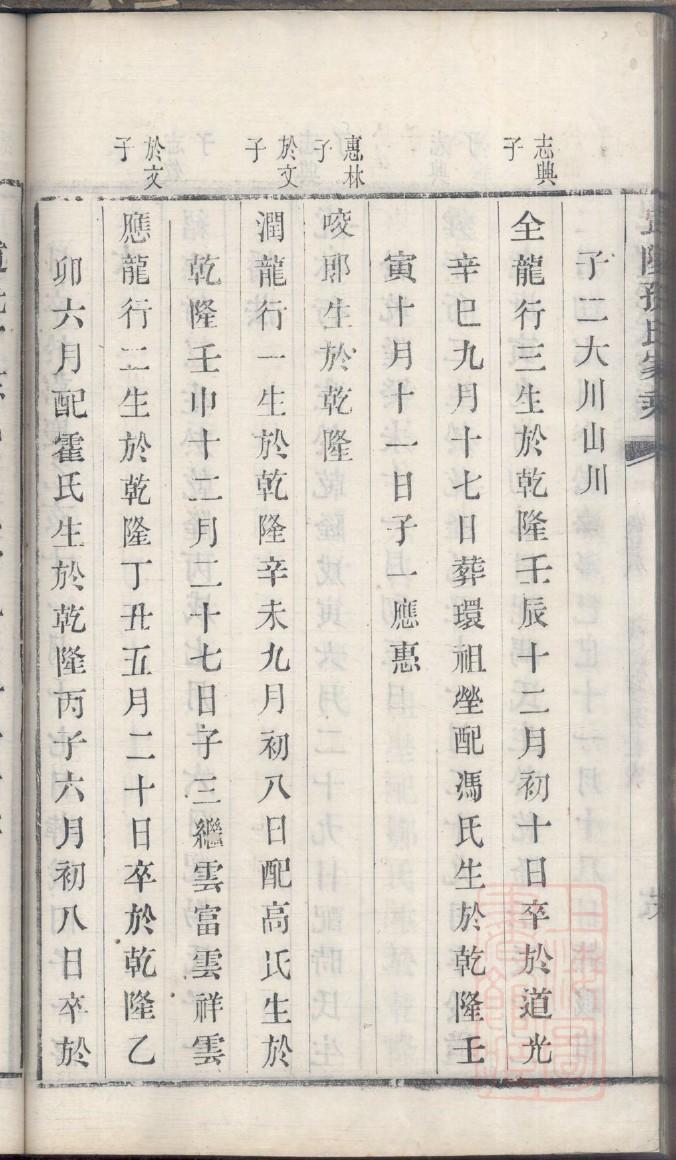 孫氏家乘
子二大川山川
志興
子
全龍行三生於乾隆壬辰十二月初十日卒於道光
辛巳九月十七日葬環祖塋配馮氏生於乾隆壬
寅十月十一日子一應惠
惠林
子
咬郎生於乾隆
於文
子
潤龍行一生於乾隆辛未九月初八日配高氏生於
乾隆壬申十二月二十七日子三繼雲富雲祥雲
於文
子
應龍行二生於乾隆丁丑五月二十日卒於乾隆乙
卯六月配霍氏生於乾隆丙子六月初八日卒於